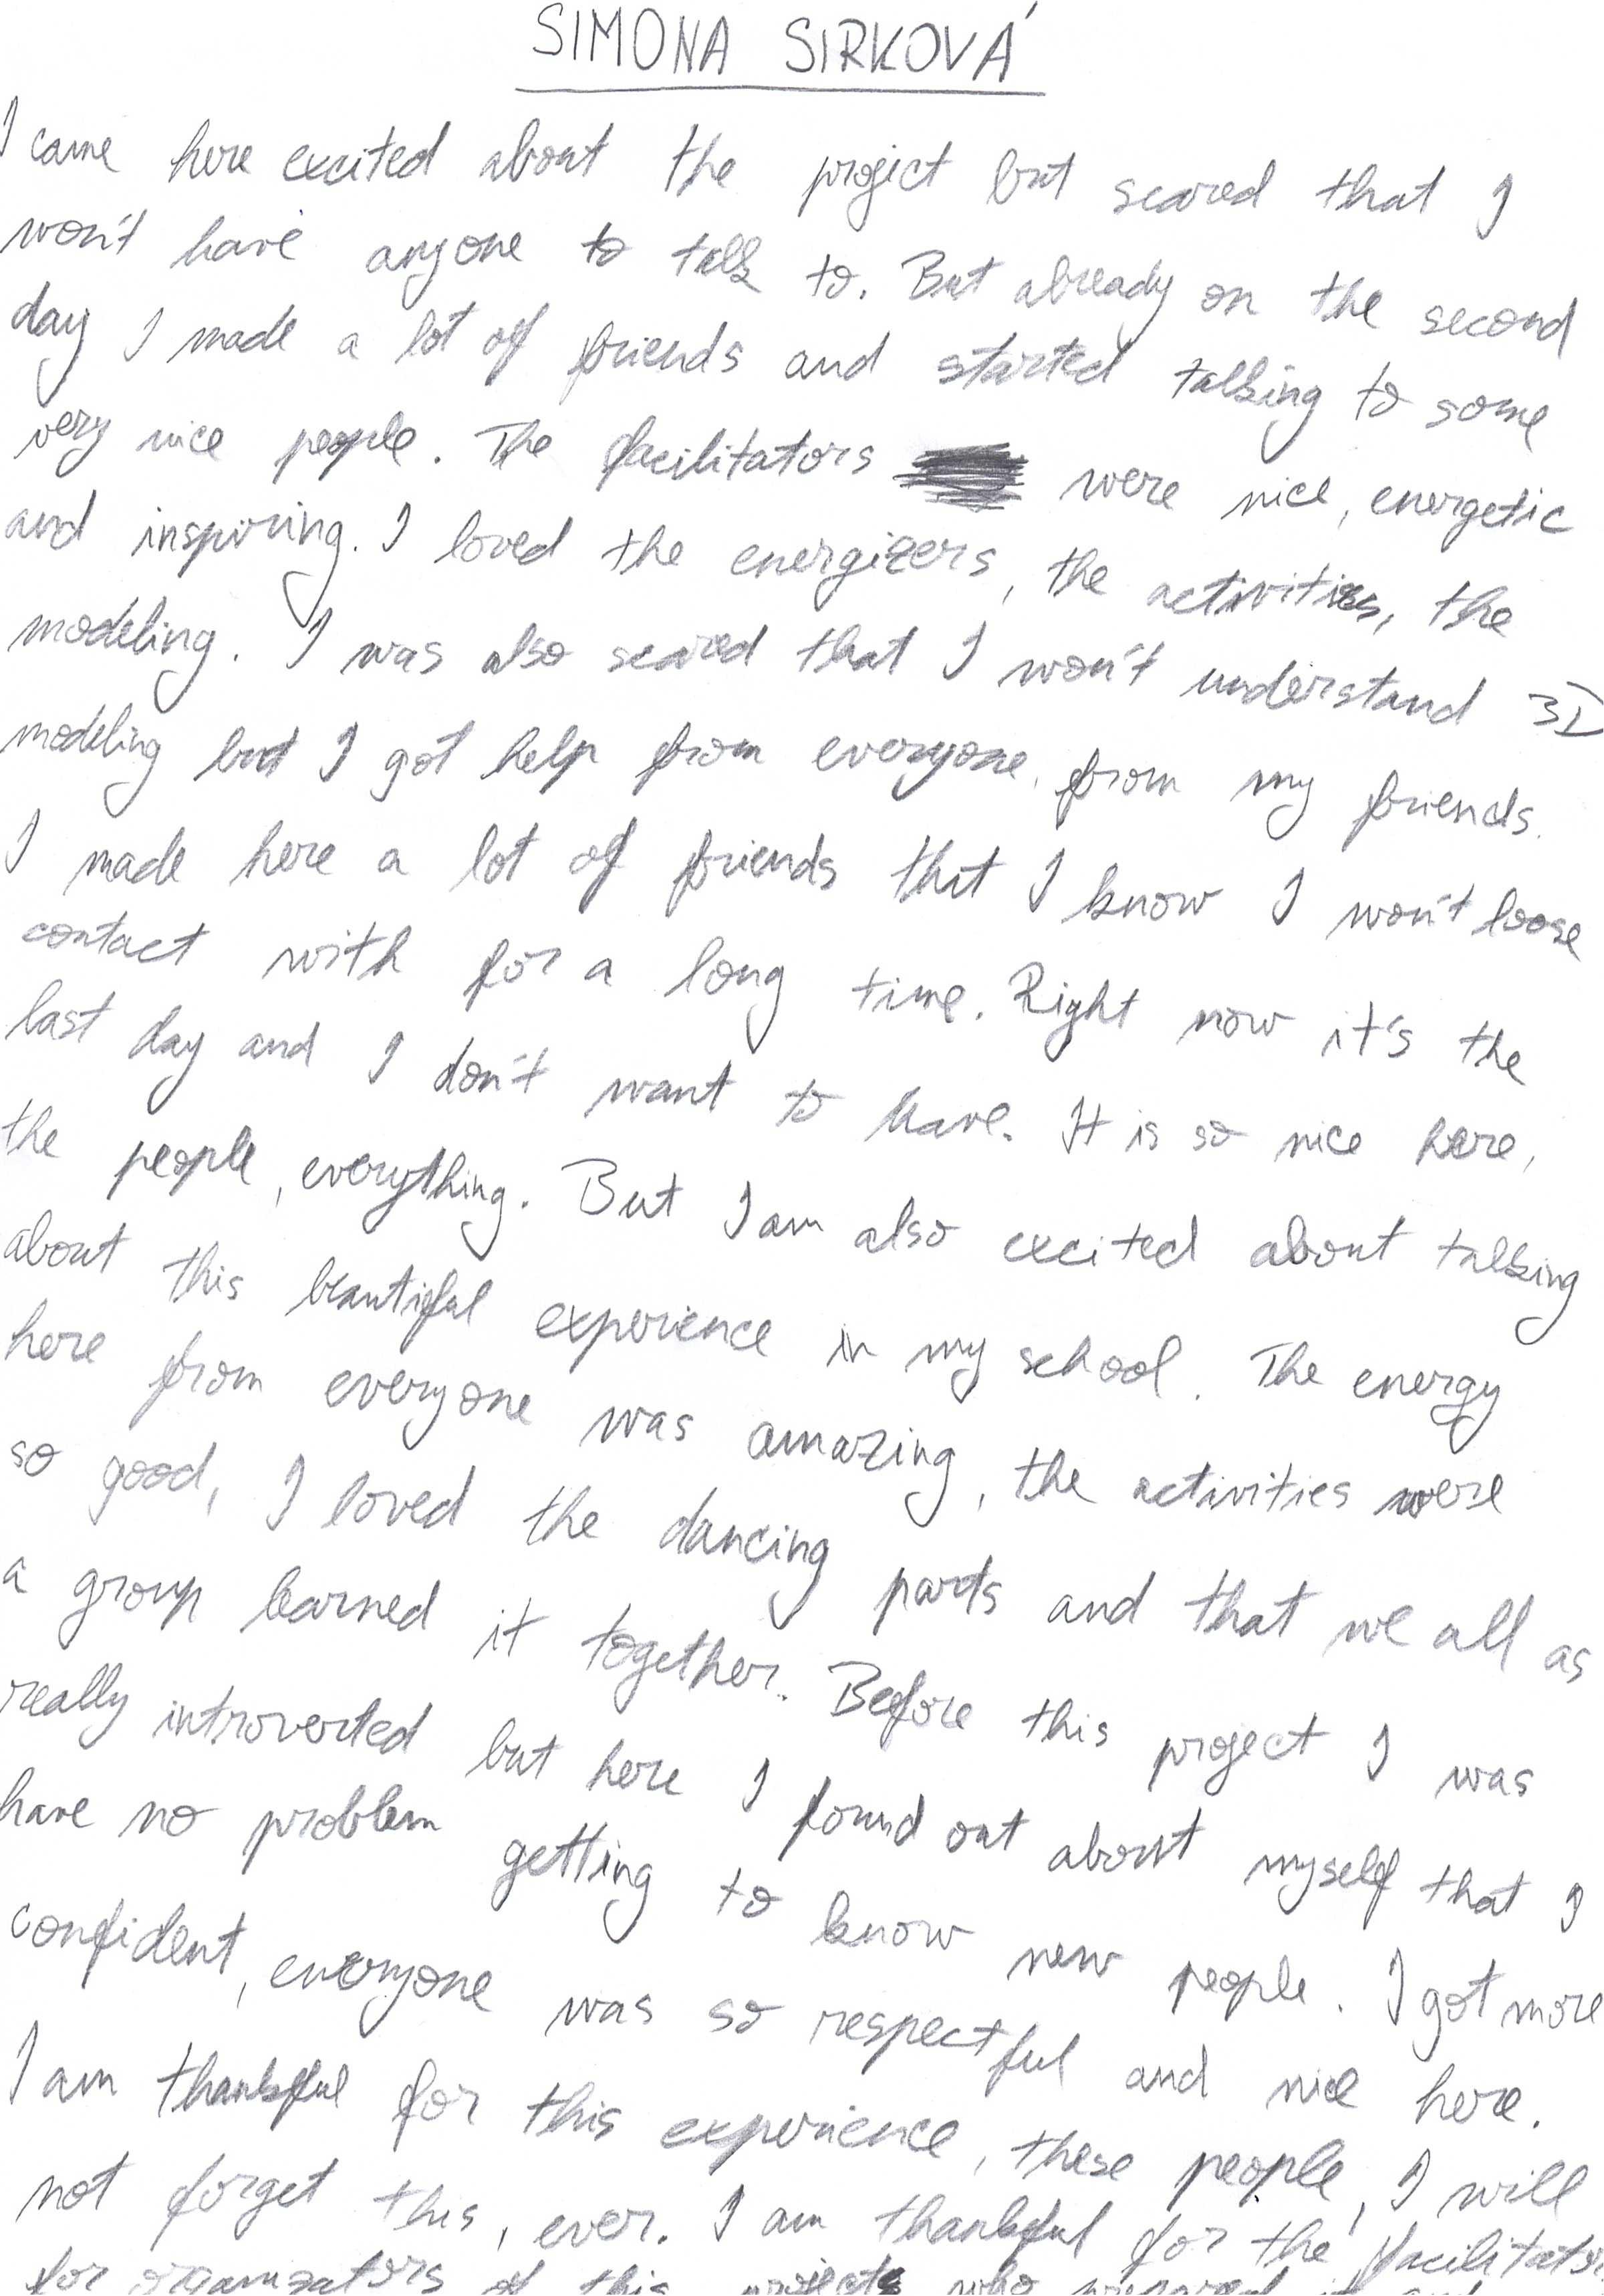 SIMONA SIRKOVÁ
I came here excited about the project but scared that I
won't have anyone to talk to. But already on the second
day I made a lot of friends and started talking to some
very nice people. The facilitators were nice, energetic
and inspiring. I loved the energizers, the activities, the
modeling. I was also scared that I won't understand 3D
modeling but I got help from everyone, from my friends.
I made here a lot of friends that I know I won't loose
contact with for a long time. Right now it's the
last day and I don't want to leave. It is so nice here,
the people, everything. But I am also excited about talking
about this beautiful experience in my school. The energy
here from everyone was amazing, the activities were
so good, I loved the dancing parts and that we all as
a group learned it together. Before this project I was
really introverted but here I found out about myself that I
have no problem getting to know new people. I got more
confident, everyone was so respectful and nice here.
I am thankful for this experience, these people, I will
not forget this, ever. I am thankful for the facilitators
for organizators of this projects who